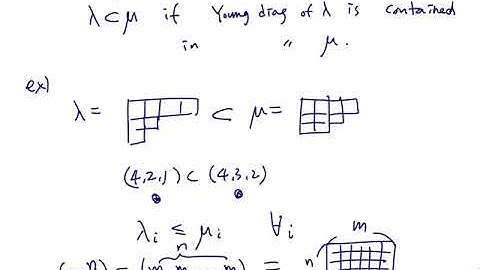 λ ⊂ μ if Young diag of λ is contained
in " μ.
ex)
λ = ⊂ μ =
(4,2,1) ⊂ (4,3,2)
λi ≤ μi ∀i
n m
= (m m ... m) = n